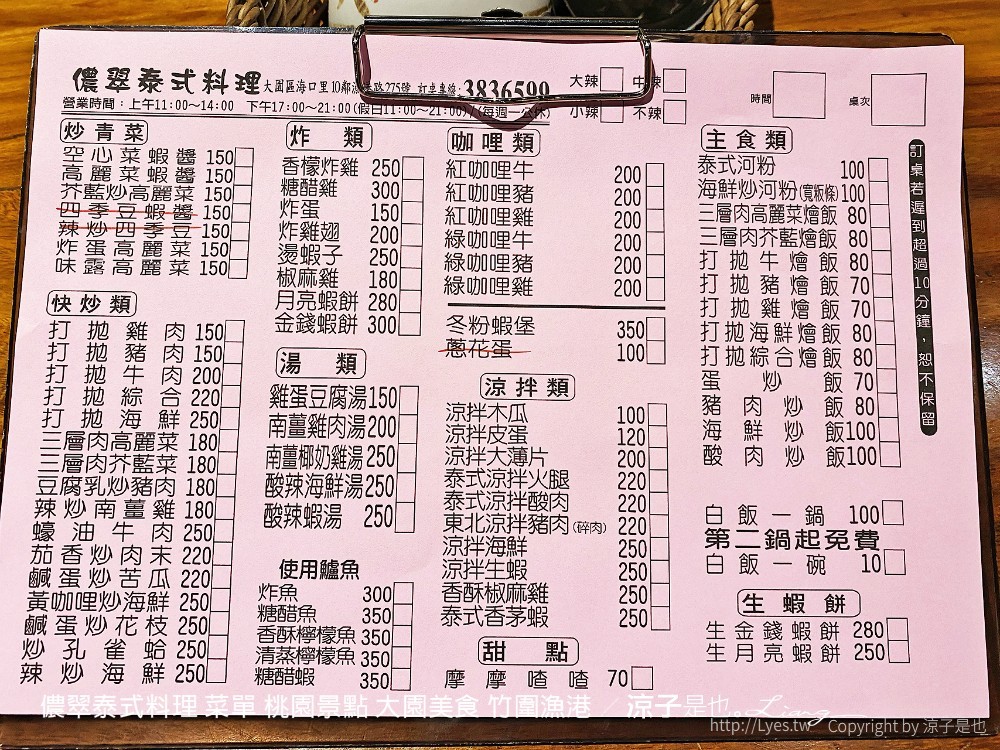 儂翠泰式料理 大園區海口里10鄰漁 路275號 訂桌專線:3836599
營業時間:上午11:00~14:00 下午17:00~21:00(假日11:00~21:00)/(每週一公休)
大辣 中辣
小辣 不辣
時間
桌次
炒青菜
空心菜蝦醬 150
高麗菜蝦醬 150
芥藍炒高麗菜 150
四季豆蝦醬 150
辣炒四季豆 150
炸蛋高麗菜 150
味露高麗菜 150
快炒類
打拋雞肉 150
打拋豬肉 150
打拋牛肉 200
打拋綜合 220
打拋海鮮 250
三層肉高麗菜 180
三層肉芥藍菜 180
豆腐乳炒豬肉 180
辣炒南薑雞 180
蠔油牛肉 250
茄香炒肉末 220
鹹蛋炒苦瓜 220
黃咖哩炒海鮮 250
鹹蛋炒花枝 250
炒孔雀蛤 250
辣炒海鮮 250
炸類
香檬炸雞 250
糖醋雞 300
炸蛋 150
炸雞翅 200
燙蝦子 250
椒麻雞 180
月亮蝦餅 280
金錢蝦餅 300
湯類
雞蛋豆腐湯 150
南薑雞肉湯 200
南薑椰奶雞湯 250
酸辣海鮮湯 250
酸辣蝦湯 250
使用鱸魚
炸魚 300
糖醋魚 350
香酥檸檬魚 350
清蒸檸檬魚 350
糖醋蝦 350
咖哩類
紅咖哩牛 200
紅咖哩豬 200
紅咖哩雞 200
綠咖哩牛 200
綠咖哩豬 200
綠咖哩雞 200
冬粉蝦堡 350
蔥花蛋 100
涼拌類
涼拌木瓜 100
涼拌皮蛋 120
涼拌大薄片 200
泰式涼拌火腿 220
泰式涼拌酸肉 220
東北涼拌豬肉(碎肉) 220
涼拌海鮮 250
涼拌生蝦 250
香酥椒麻雞 250
泰式香茅蝦 250
甜點
摩摩喳喳 70
主食類
泰式河粉 100
海鮮炒河粉(寬粄條) 100
三層肉高麗菜燴飯 80
三層肉芥藍燴飯 80
打拋牛燴飯 80
打拋豬燴飯 70
打拋雞燴飯 70
打拋海鮮燴飯 80
打拋綜合燴飯 80
蛋炒飯 70
豬肉炒飯 80
海鮮炒飯 100
酸肉炒飯 100
白飯一鍋 100
第二鍋起免費
白飯一碗 10
生蝦餅
生金錢蝦餅 280
生月亮蝦餅 250
訂桌若遲到超過10分鐘,恕不保留
儂翠泰式料理 菜單 桃園景點 大園美食 竹圍漁港 / 涼子是也 Liang
http://Lyes.tw Copyright by 涼子是也